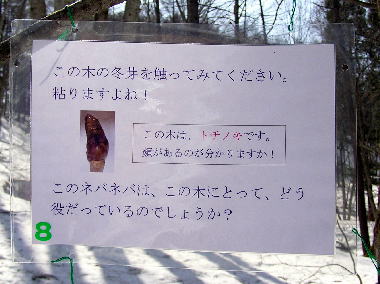 この木の冬芽を触ってみてください。
粘りますよね！
この木は、トチノキです。
蝋があるのが分かりますか！
このネバネバは、この木にとって、どう
役だっているのでしょうか？
8